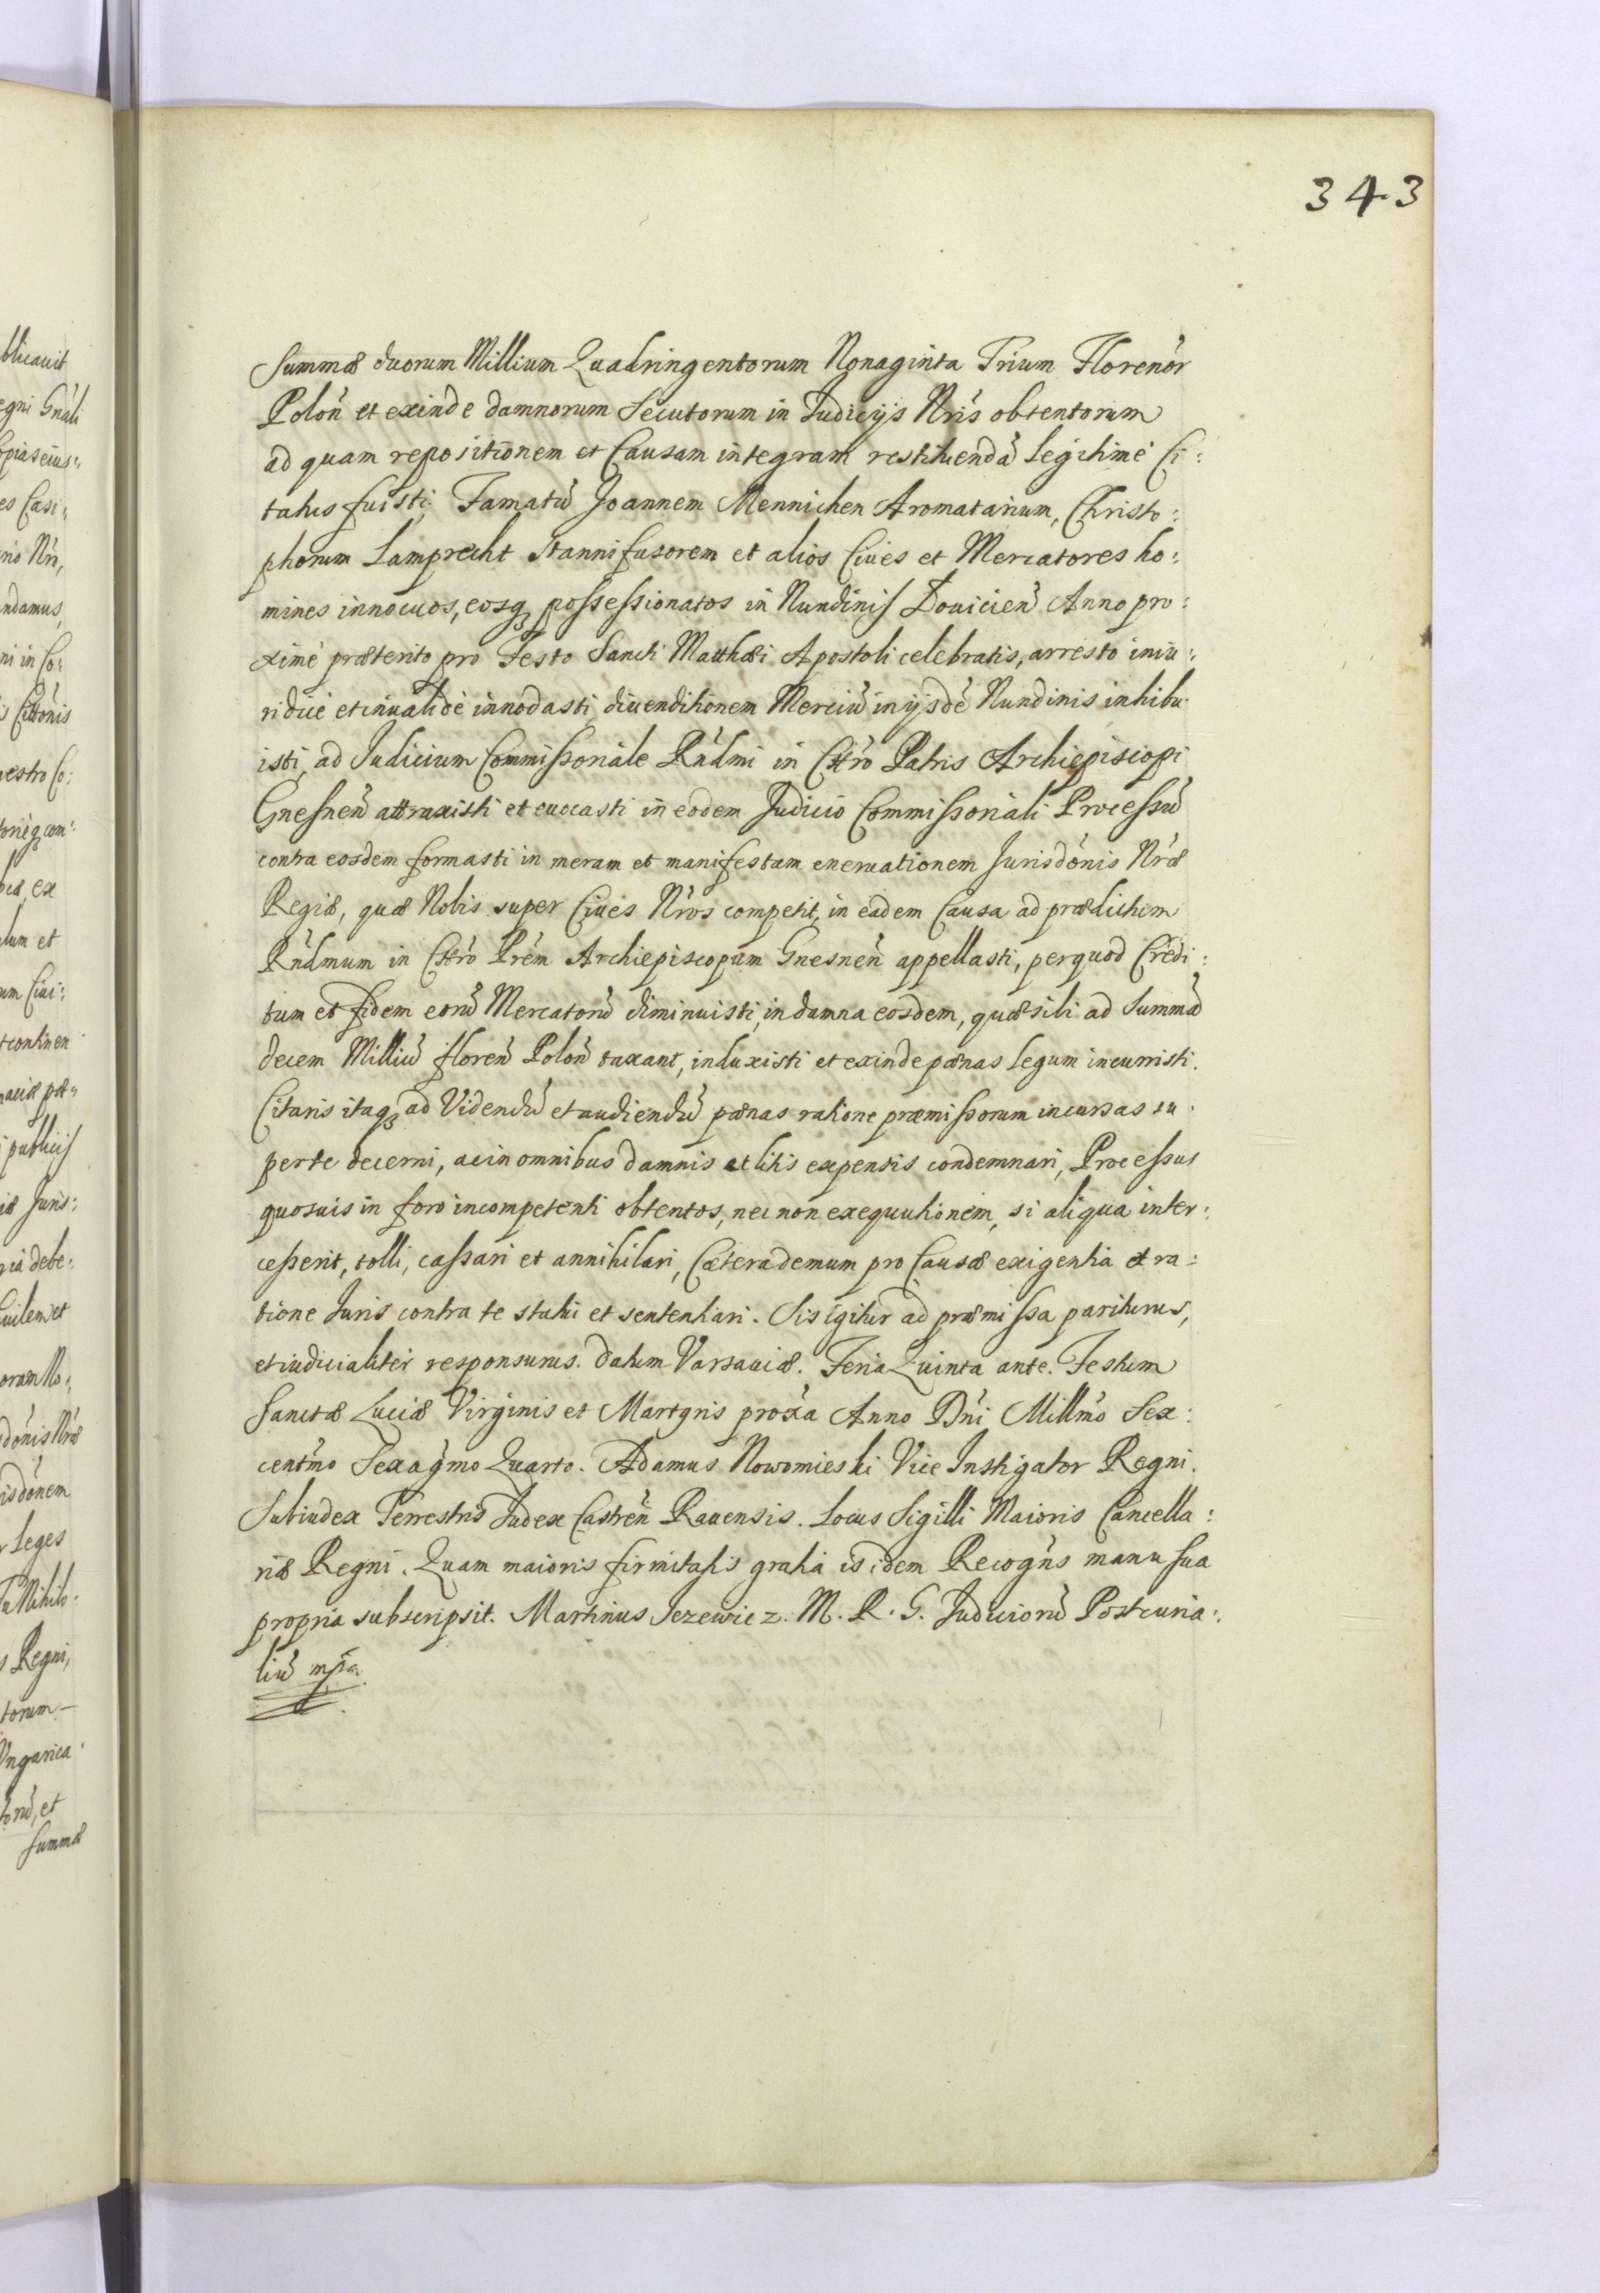 343
Summæ duorum Millium Quadringentorum Nonaginta Trium Florenór
Polon̄ et exinde damnorum Secutorum in Judicijs Nrīs obtentorum
ad quam repositionem et Causam integram restituendā Legitimè Ci:
tatus fuisti, Famatū Joannem Mennichen Aromatarium, Christo:
phorum Lamprecht Stannifusorem et alios Ciues et Mercatores ho:
mines innocuos, eosq possessionatos in Nundinis Łouicien̄ Anno pro:
ximè præterito pro Festo Sancti Matthæi Apostoli celebratis, arresto iniu:
ridicè et inualidè innodasti, diuenditionem Merciū in ijsdē Nundinis inhibu
isti, ad Judicium Commissoriale Rn̄dmi in Chrō Patris Archiepiscopi
Gnesnen̄ attraxisti et euocasti in eodem Judicio Commissoriali Processū
contra eosdem formasti in meram et manifestam eneruationem Jurisdōnis Nræ
Regiæ, quæ Nobis super Ciues Nros competit, in eadem Causa ad prædictum
Rn̄dmum in Chrō Prēm Archiepiscopum Gnesnen̄ appellasti, per quod Credi:
tum et fidem eorū Mercatorū diminuisti, in damna eosdem, quæ sibi ad Summā
decem Milliū floren̄ Polon̄ taxant, induxisti et exinde pænas Legum incurristi.
Citaris itaq ad Videndū et audiendū pænas ratione præmissorum incursas su:
per te decerni, ac in omnibus damnis et litis expensis condemnari, Processus
quosuis in foro incompetenti obtentos, nec non exequutionem, si aliqua inter:
cesserit, tolli, cassari et annihilari, Cætera demum pro Causæ exigentia et ra:
tione Juris contra te statui et sententiari. Sis igitur ad præmissa pariturus,
et iudicialiter responsurus. Datum Varsauiæ. Feria Quinta ante Festum
Sanctæ Luciæ Virginis et Martyris proxā Anno Dn̄i Millmo Sex:
centmo Sexagmo Quarto. Adamus Nowomieski Vice Instigator Regni.
Subiudex Terrestris Judex Castren̄ Rauensis. Locus Sigilli Maioris Cancella:
riæ Regni. Quam maioris firmitatis gratia is idem Recogn̄s manu sua
propria subscripsit. Martinus Jezewicz. M. R. G. Judiciorū Postcuria:
liū mpa.